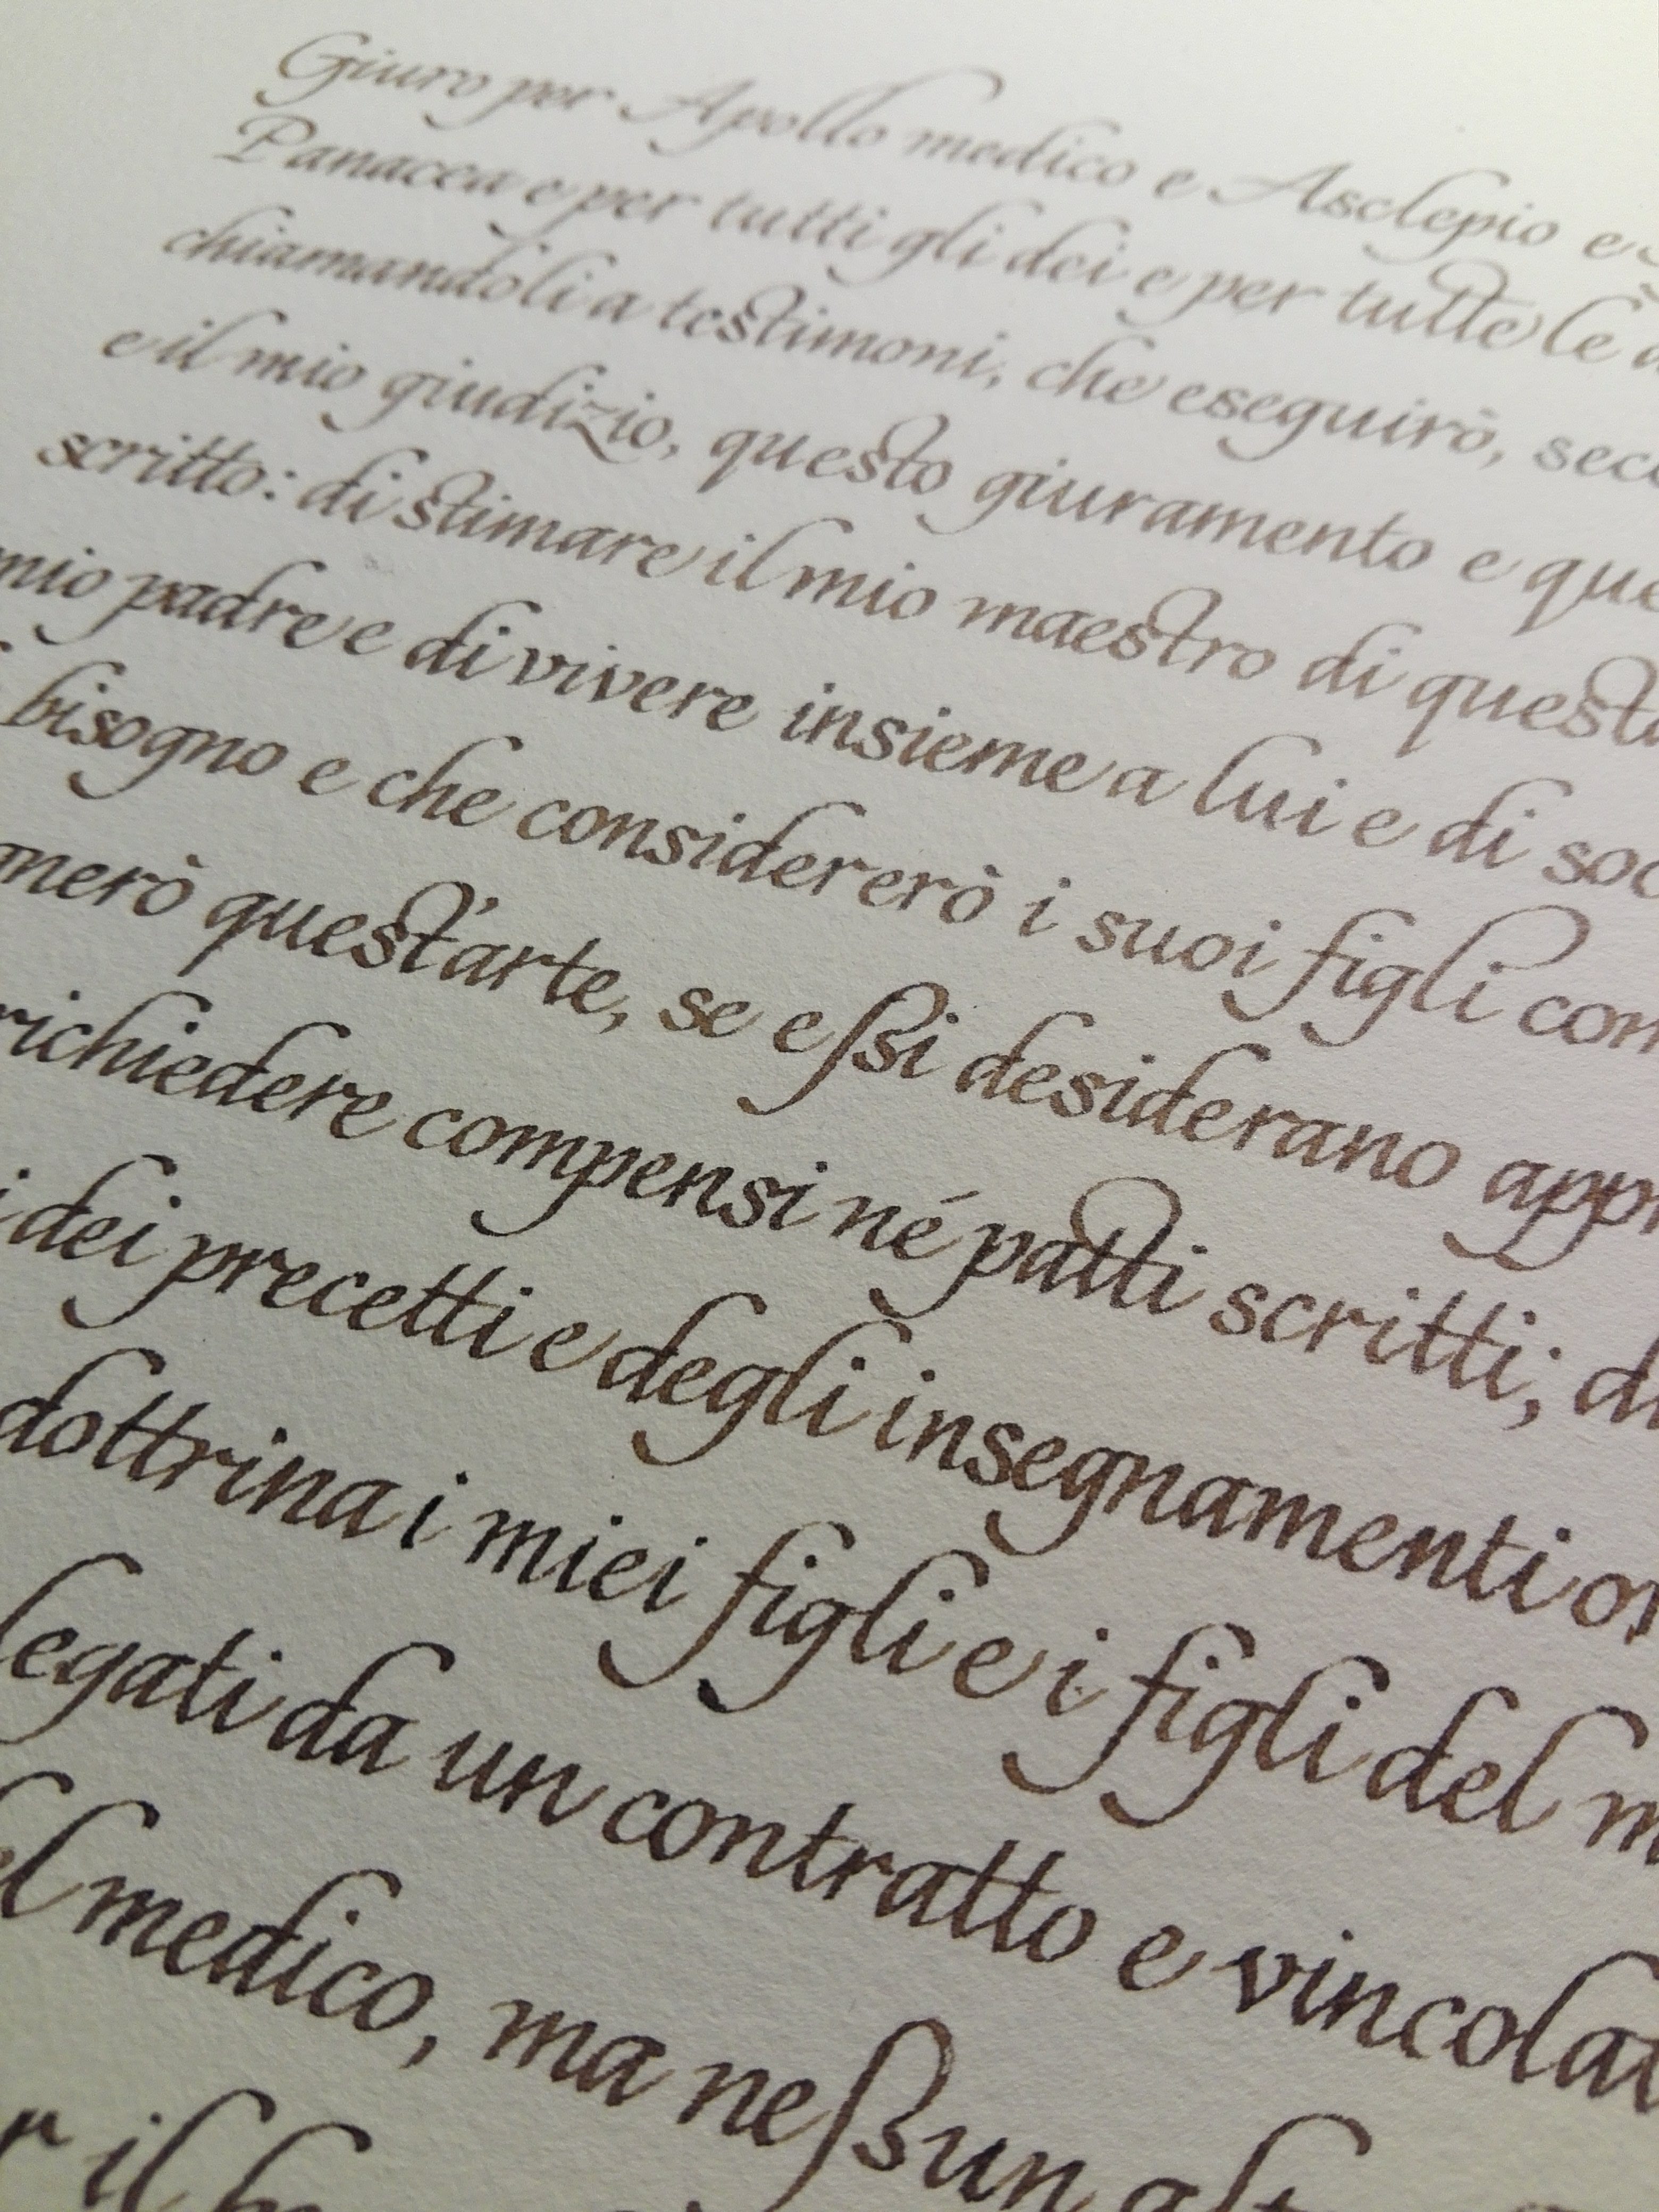 Giuro per Apollo medico e Asclepio e
Panacea e per tutti gli dei e per tutte le
chiamandoli a testimoni, che eseguirò,
e il mio giudizio, questo giuramento e
scritto: di stimare il mio maestro di
mio padre e di vivere insieme a lui e di
bisogno e che considererò i suoi figli
quest'arte, se essi desiderano
richiedere compensi né patti scritti;
dei precetti e degli insegnamenti
dottrina i miei figli e i figli del
legati da un contratto e
medico, ma nessun
il